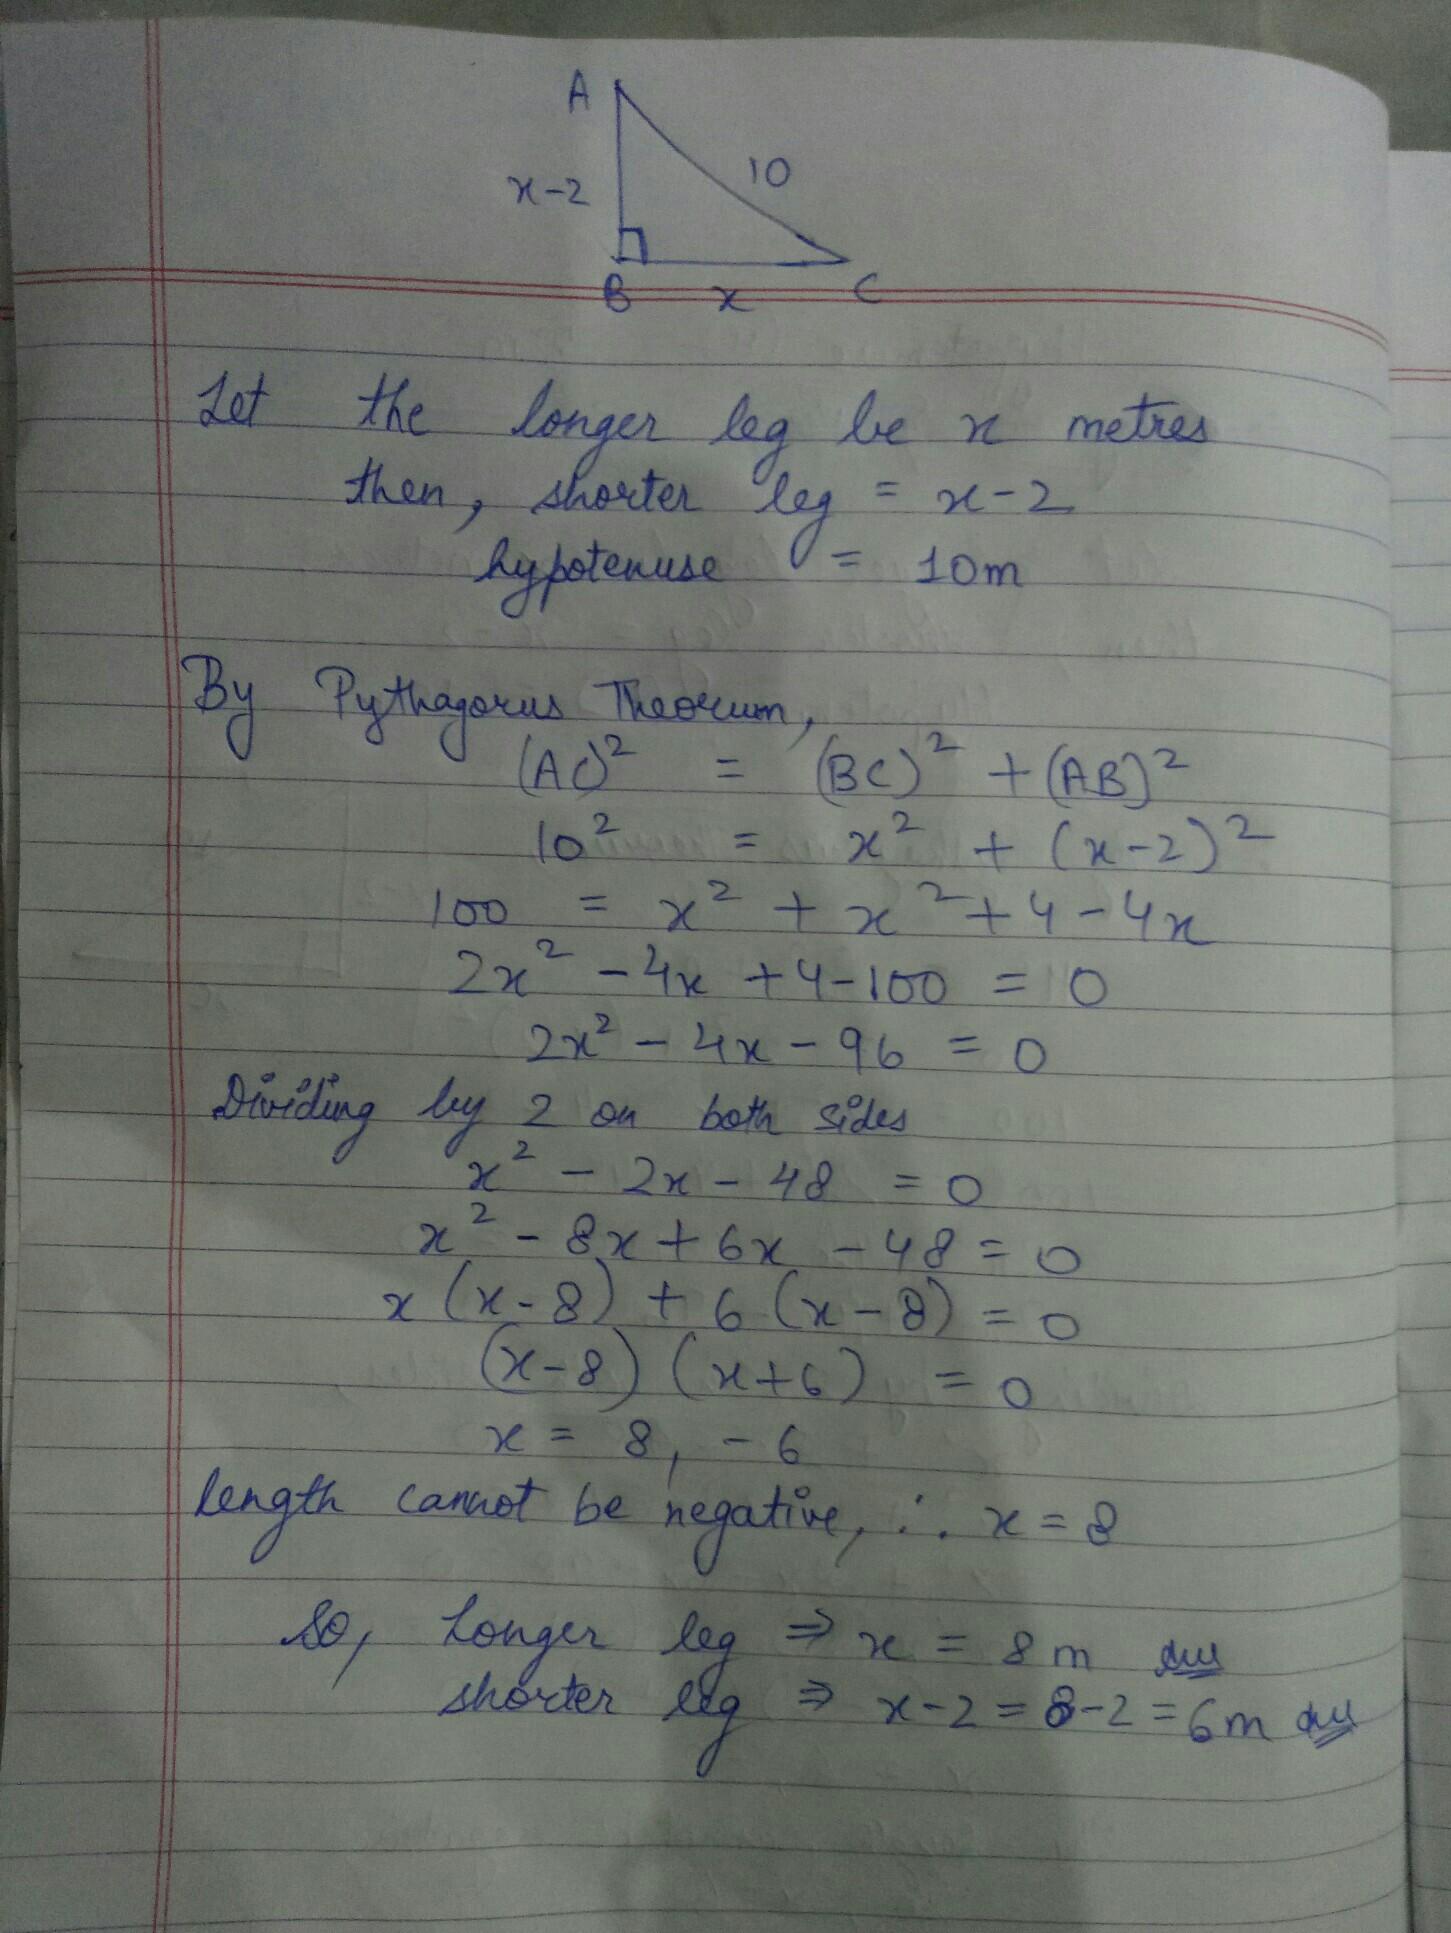 A
x-2
10
B
x
C
Let the longer leg be x metres
then, shorter leg = x-2
hypotenuse = 10m
By Pythagorus Theorum,
(AC)² = (BC)² + (AB)²
10² = x² + (x-2)²
100 = x² + x² + 4 - 4x
2x² - 4x + 4 - 100 = 0
2x² - 4x - 96 = 0
Dividing by 2 on both sides
x² - 2x - 48 = 0
x² - 8x + 6x - 48 = 0
x (x-8) + 6 (x-8) = 0
(x-8) (x+6) = 0
x = 8, -6
Length cannot be negative, ∴ x = 8
So, Longer leg ⇒ x = 8m
shorter leg ⇒ x-2 = 8-2 = 6m